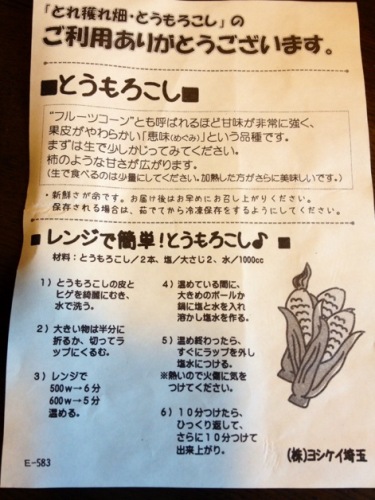 「とれ獲れ畑・とうもろこし」の
ご利用ありがとうございます。
■とうもろこし■
“フルーツコーン”とも呼ばれるほど甘味が非常に強く、
果皮がやわらかい「恵味(めぐみ)」という品種です。
まずは生で少しかじってみてください。
柿のような甘さが広がります。
(生で食べるのは少量にしてください。加熱した方がさらに美味しいです。)
・新鮮さが命です。お届け後はお早めにお召し上がりください。
保存される場合は、茹でてから冷凍保存をするようにしてください。
■レンジで簡単!とうもろこし♪
材料:とうもろこし/2本、塩/大さじ2、水/1000cc
1)とうもろこしの皮と
ヒゲを綺麗にむき、
水で洗う。
2)大きい物は半分に
折るか、切ってラ
ップにくるむ。
3)レンジで
500w→6分
600w→5分
温める。
4)温めている間に、
大きめのボールか
鍋に塩と水を入れ
溶かし塩水を作る。
5)温め終わったら、
すぐにラップを外し
塩水につける。
※熱いので火傷に気を
つけてください。
6)10分つけたら、
ひっくり返して、
さらに10分つけて
出来上がり。
E-583
(株)ヨシケイ埼玉